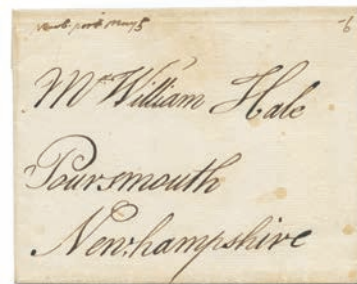 Newb. port May 5 -6
Mr. William Hale
Poursmouth
Newhampshire